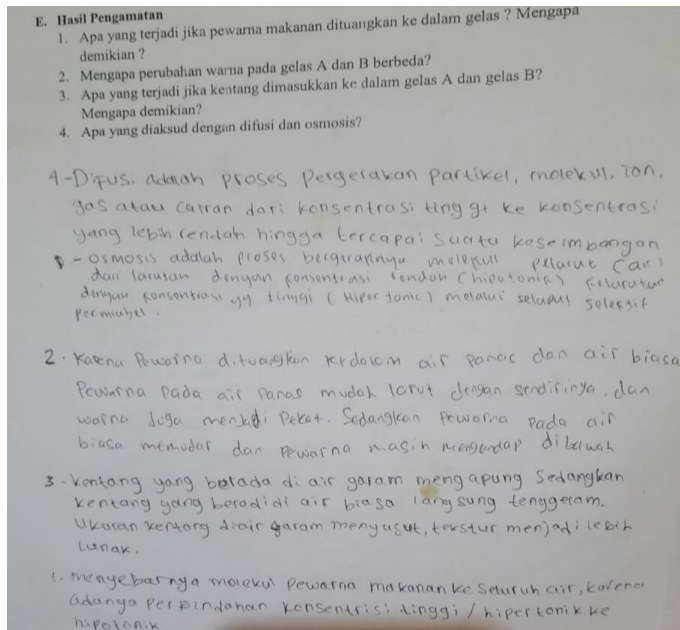 E. Hasil Pengamatan
1. Apa yang terjadi jika pewarna makanan dituangkan ke dalam gelas ? Mengapa
demikian ?
2. Mengapa perubahan warna pada gelas A dan B berbeda?
3. Apa yang terjadi jika kentang dimasukkan ke dalam gelas A dan gelas B?
Mengapa demikian?
4. Apa yang diaksud dengan difusi dan osmosis?
4 - Difusi adalah proses pergerakan partikel, molekul, ion,
gas atau cairan dari konsentrasi tinggi ke konsentrasi
yang lebih rendah hingga tercapai suatu keseimbangan
- osmosis adalah proses bergeraknya molekul pelarut (air)
dari larutan dengan konsentrasi rendah (hipotonik)
dengan konsentrasi yg tinggi (Hipertonic) melalui selaput selektif
permiabel.
2. Karena Pewarna dituangkan kedalam air panas dan air biasa
Pewarna pada air panas mudah larut dengan sendirinya, dan
warna Juga menjadi Pekat. Sedangkan Pewarna pada air
biasa memudar dan Pewarna masih mengendap dibawah
3. kentang yang berada di air garam mengapung Sedangkan
kentang yang beradidi air biasa langsung tenggelam.
Ukuran kentang diair garam menyusut, tekstur menjadi lebih
Lunak.
1. menyebarnya molekul pewarna makanan ke seluruh air, karena
adanya perpindahan konsentrisi tinggi / hipertonik ke
hipotonik